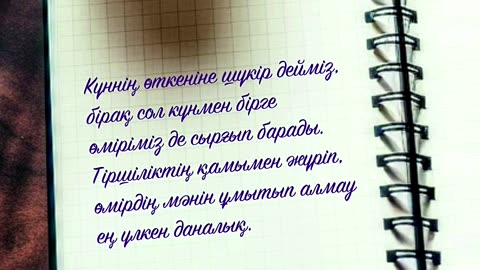 Күннің өткеніне шүкір дейміз,
бірақ сол күнмен бірге
өміріміз де сырғып барады.
Тіршіліктің қамымен жүріп,
өмірдің мәнін ұмытып алмау
ең үлкен даналық.